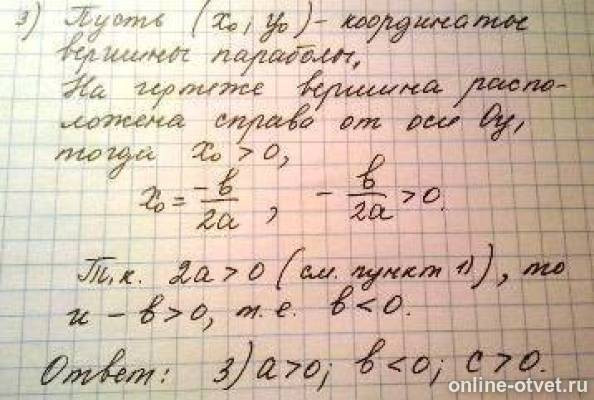 3) Пусть (x₀, y₀) - координаты
вершины параболы,
На чертеже вершина распо-
ложена справа от оси Oy,
тогда x₀ > 0,
x₀ = -b/2a , - b/2a > 0.
Т.к. 2a > 0 (см. пункт 1)), то
и - b > 0, т.е. b < 0.
Ответ: 3) a > 0; b < 0; c > 0.
online-otvet.ru